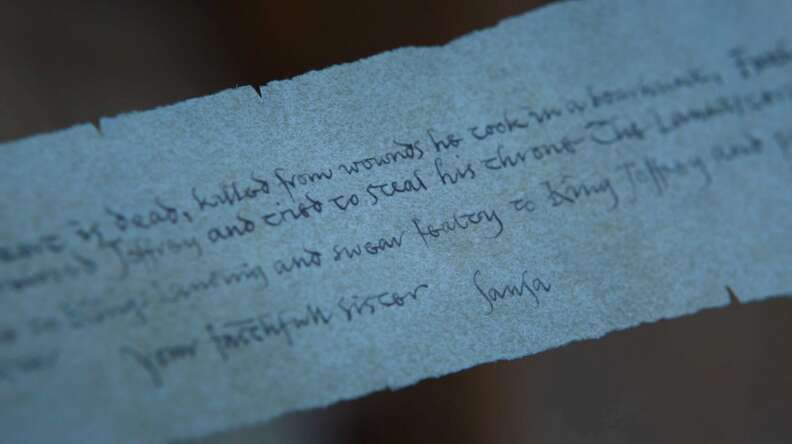 is dead, killed from wounds he took in a boar hunt.
Joffrey and tried to steal his throne. The Lannisters
to Kings Landing and swear fealty to King Joffrey and
Your faithfull sister Sansa